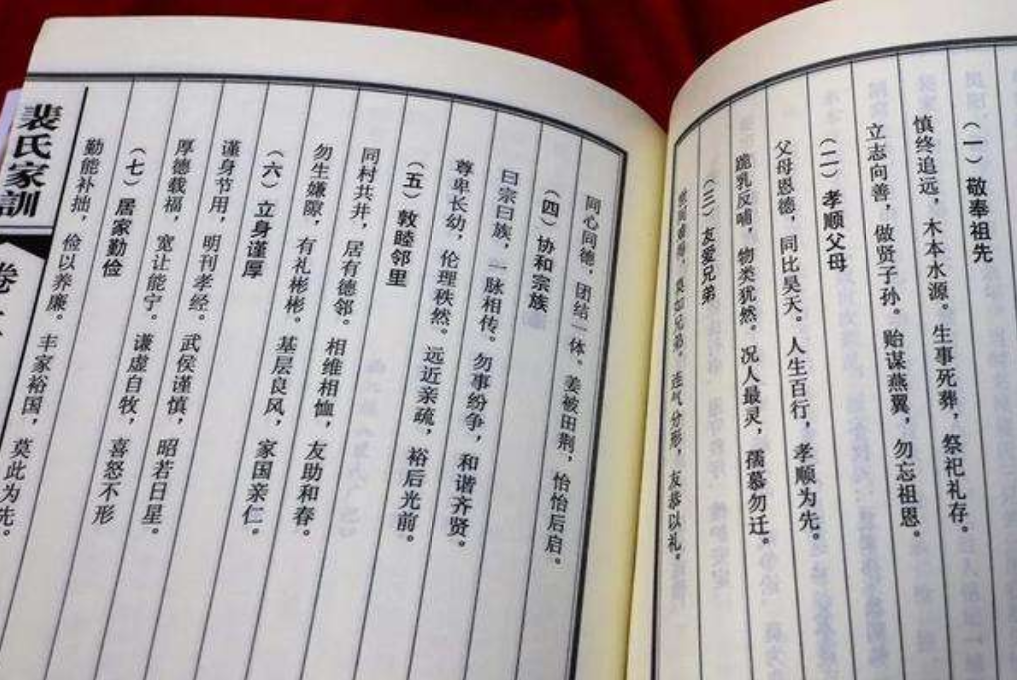 （一）敬奉祖先
慎终追远，木本水源。生事死葬，祭祀礼存。
立志向善，做贤子孙。贻谋燕翼，勿忘祖恩。
（二）孝顺父母
父母恩德，同比昊天。人生百行，孝顺为先。
跪乳反哺，物类犹然。况人最灵，孺慕勿迁。
（三）友爱兄弟
莫如兄弟。连气分形，友恭以礼。
同心同德，团结一体。姜被田荆，怡怡后启。
（四）协和宗族
曰宗曰族，一脉相传。勿事纷争，和谐齐贤。
尊卑长幼，伦理秩然。远近亲疏，裕后光前。
（五）敦睦邻里
同村共井，居有德邻。相维相恤，友助和春。
勿生嫌隙，有礼彬彬。基层良风，家国亲仁。
（六）立身谨厚
谨身节用，明刊孝经。武侯谨慎，昭若日星。
厚德载福，宽让能宁。谦虚自牧，喜怒不形
（七）居家勤俭
勤能补拙，俭以养廉。丰家裕国，莫此为先。
裴氏家訓
卷